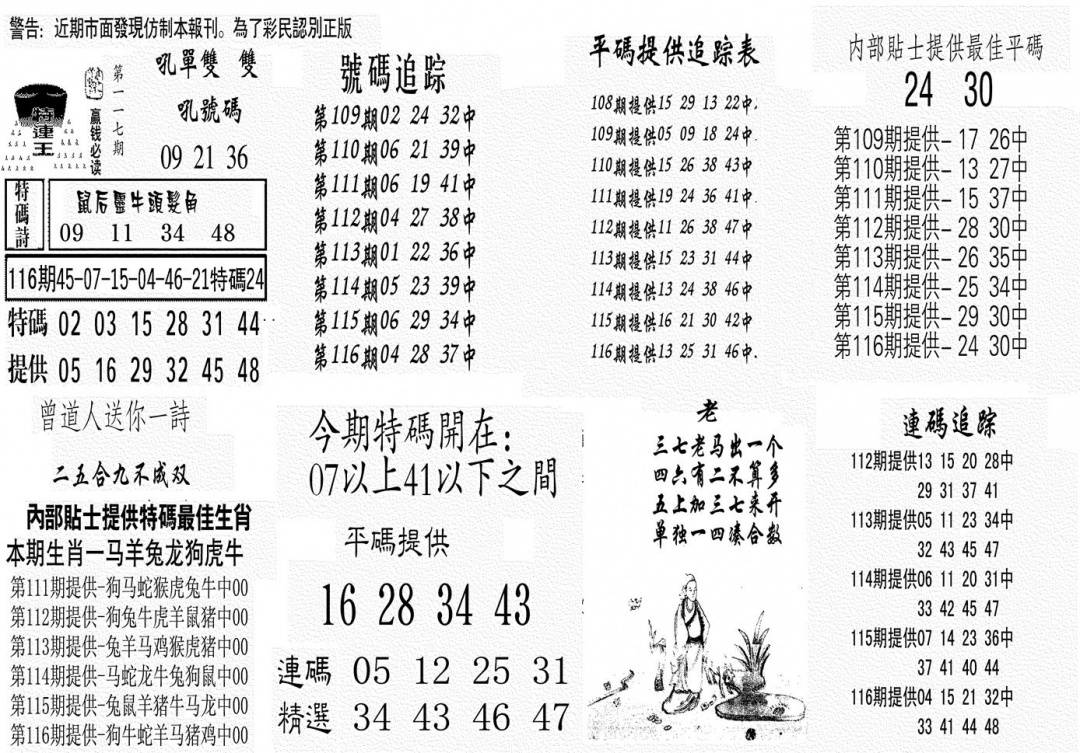 警告: 近期市面發現仿制本報刊。為了彩民認別正版
第一一七期
贏钱必读
特連王
吼單雙 雙
吼號碼
09 21 36
特碼詩
鼠后靈牛頭髮角
09 11 34 48
116期45-07-15-04-46-21特碼24
特碼 02 03 15 28 31 44
提供 05 16 29 32 45 48
號碼追踪
第109期02 24 32中
第110期06 21 39中
第111期06 19 41中
第112期04 27 38中
第113期01 22 36中
第114期05 23 39中
第115期06 29 34中
第116期04 28 37中
平碼提供追踪表
108期提供15 29 13 22中.
109期提供05 09 18 24中.
110期提供15 26 38 43中
111期提供19 24 36 41中
112期提供11 26 38 47中
113期提供15 23 31 44中
114期提供13 24 38 46中
115期提供16 21 30 42中
116期提供13 25 31 46中.
内部貼士提供最佳平碼
24 30
第109期提供-17 26中
第110期提供-13 27中
第111期提供-15 37中
第112期提供-28 30中
第113期提供-26 35中
第114期提供-25 34中
第115期提供-29 30中
第116期提供-24 30中
曾道人送你一詩
二五合九不成双
內部貼士提供特碼最佳生肖
本期生肖一马羊兔龙狗虎牛
第111期提供-狗马蛇猴虎兔牛中00
第112期提供-狗兔牛虎羊鼠猪中00
第113期提供-兔羊马鸡猴虎猪中00
第114期提供-马蛇龙牛兔狗鼠中00
第115期提供-兔鼠羊猪牛马龙中00
第116期提供-狗牛蛇羊马猪鸡中00
今期特碼開在:
07以上41以下之間
平碼提供
16 28 34 43
連碼 05 12 25 31
精選 34 43 46 47
老
三七老马出一个
四六有二不算多
五上加三七来开
单独一四凑合数
連碼追踪
112期提供13 15 20 28中
29 31 37 41
113期提供05 11 23 34中
32 43 45 47
114期提供06 11 20 31中
33 42 45 47
115期提供07 14 23 36中
37 41 40 44
116期提供04 15 21 32中
33 41 44 48